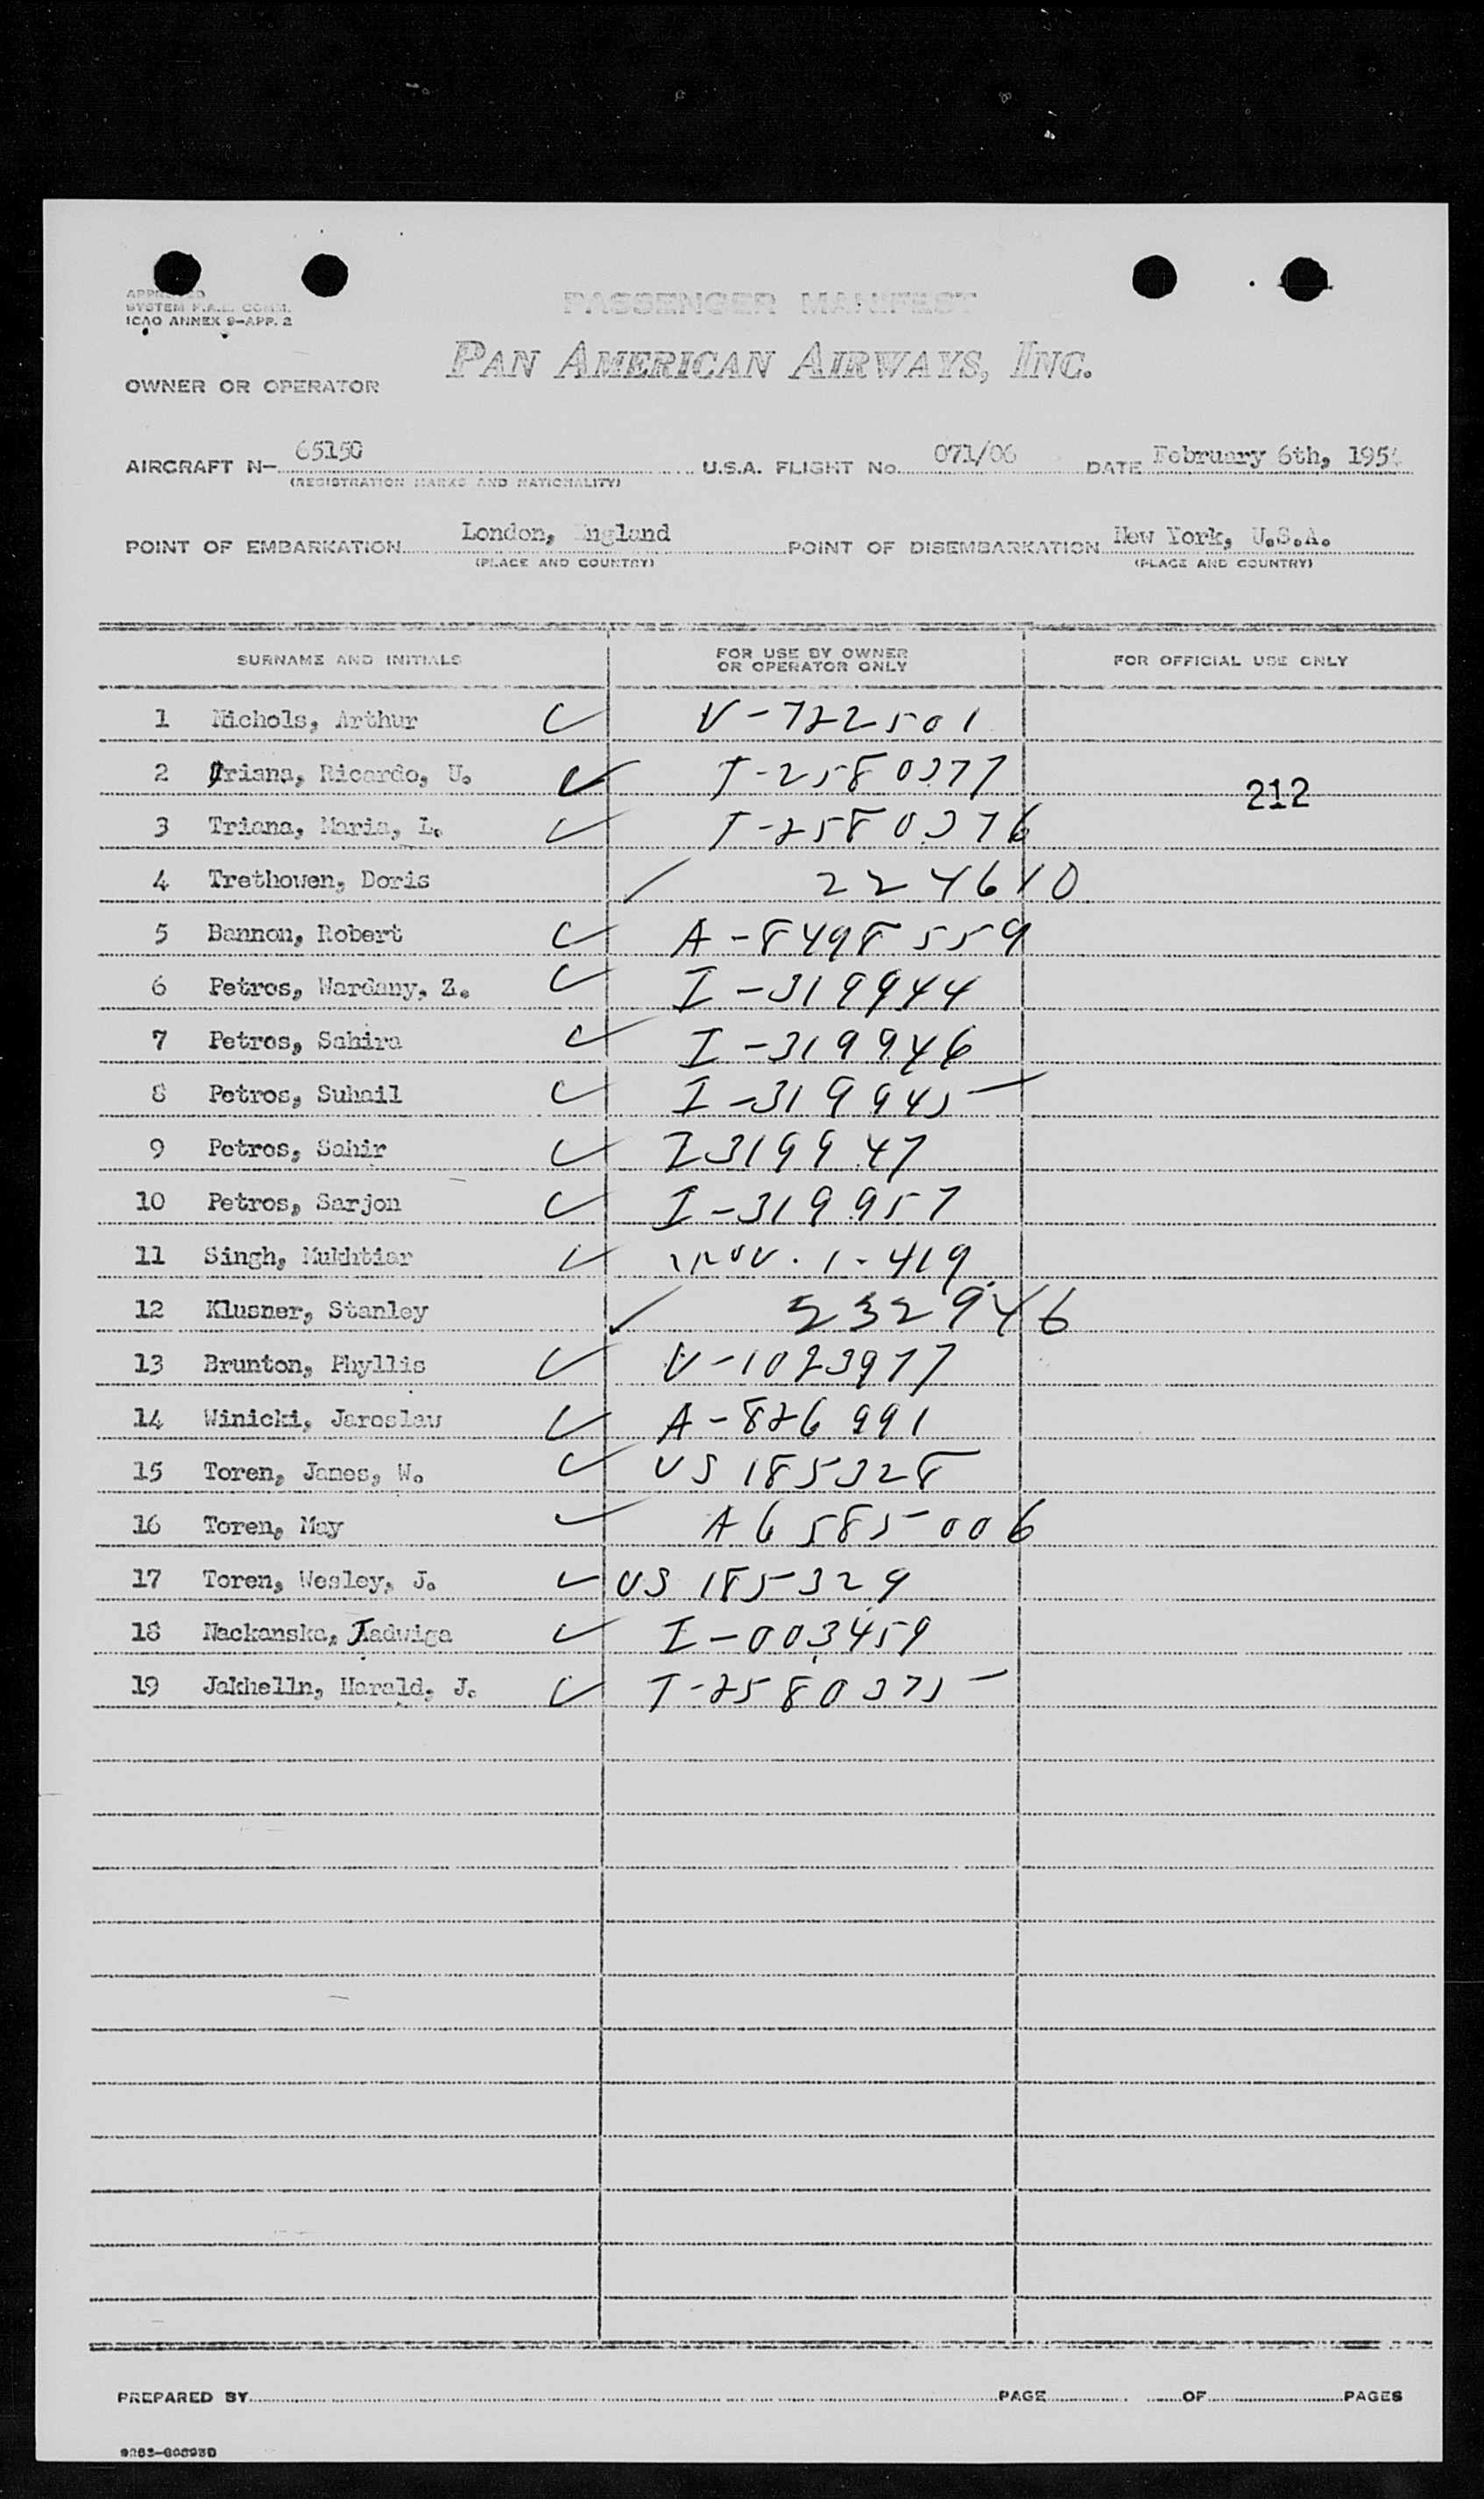 APPROVED
SYSTEM P.A.A. COMM.
ICAO ANNEX 9-APP. 2
PASSENGER MANIFEST
PAN AMERICAN AIRWAYS, INC.
OWNER OR OPERATOR
AIRCRAFT N- 65150 U.S.A. FLIGHT No. 071/06 DATE February 6th, 195
(REGISTRATION MARKS AND NATIONALITY)
POINT OF EMBARKATION London, England POINT OF DISEMBARKATION New York, U.S.A.
(PLACE AND COUNTRY) (PLACE AND COUNTRY)
SURNAME AND INITIALS FOR USE BY OWNER OR OPERATOR ONLY FOR OFFICIAL USE ONLY
1 Nichols, Arthur V-722501
2 Triana, Ricardo, U. T-2580377
212
3 Triana, Maria, L. T-2580376
4 Trethowen, Doris 224610
5 Bannon, Robert A-8498559
6 Petros, Wardany, Z. I-319944
7 Petros, Sahira I-319946
8 Petros, Suhail I-319945
9 Petros, Sahir I319947
10 Petros, Sarjon I-319957
11 Singh, Mukhtiar 1-419
12 Klusner, Stanley 232946
13 Brunton, Phyllis V-1023977
14 Winicki, Jaroslaw A-826991
15 Toren, James, W. US 185328
16 Toren, May A6585006
17 Toren, Wesley, J. US 185329
18 Nackanska, Jadwiga I-003459
19 Jakhelln, Harald, J. T-2580375
PREPARED BY PAGE OF PAGES